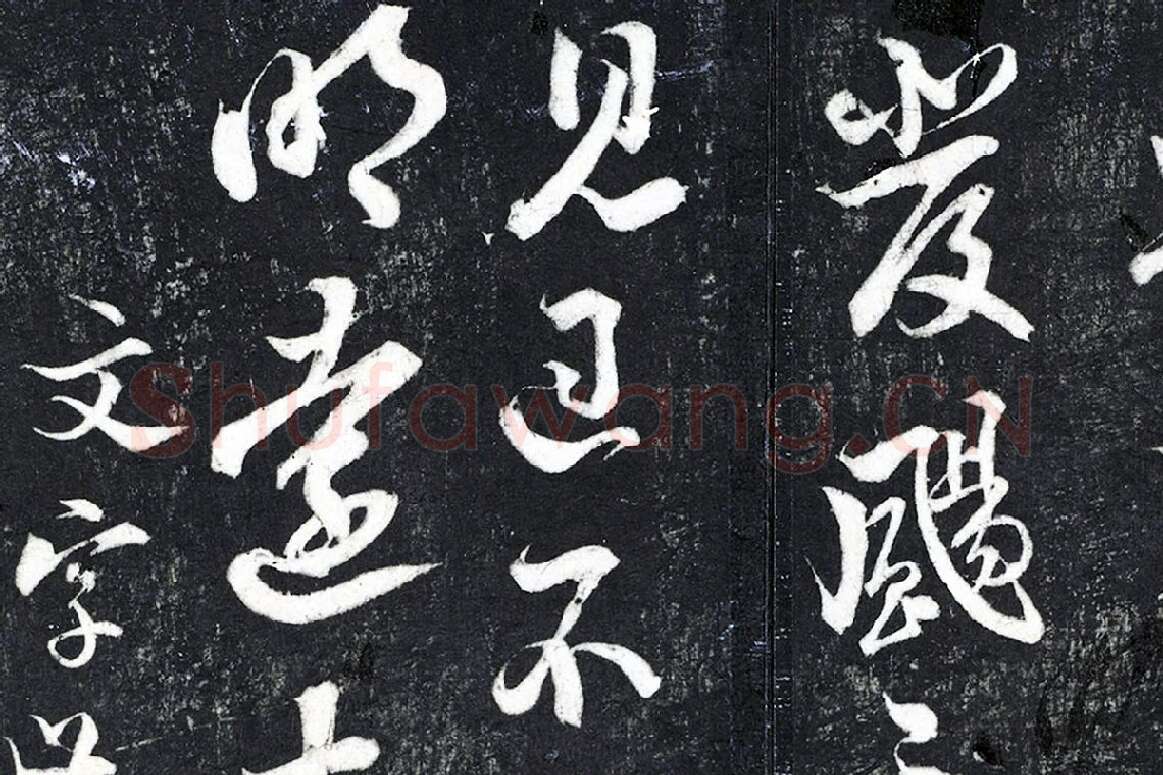 發颺
見已不
明遠
文字
Shufawang.CN